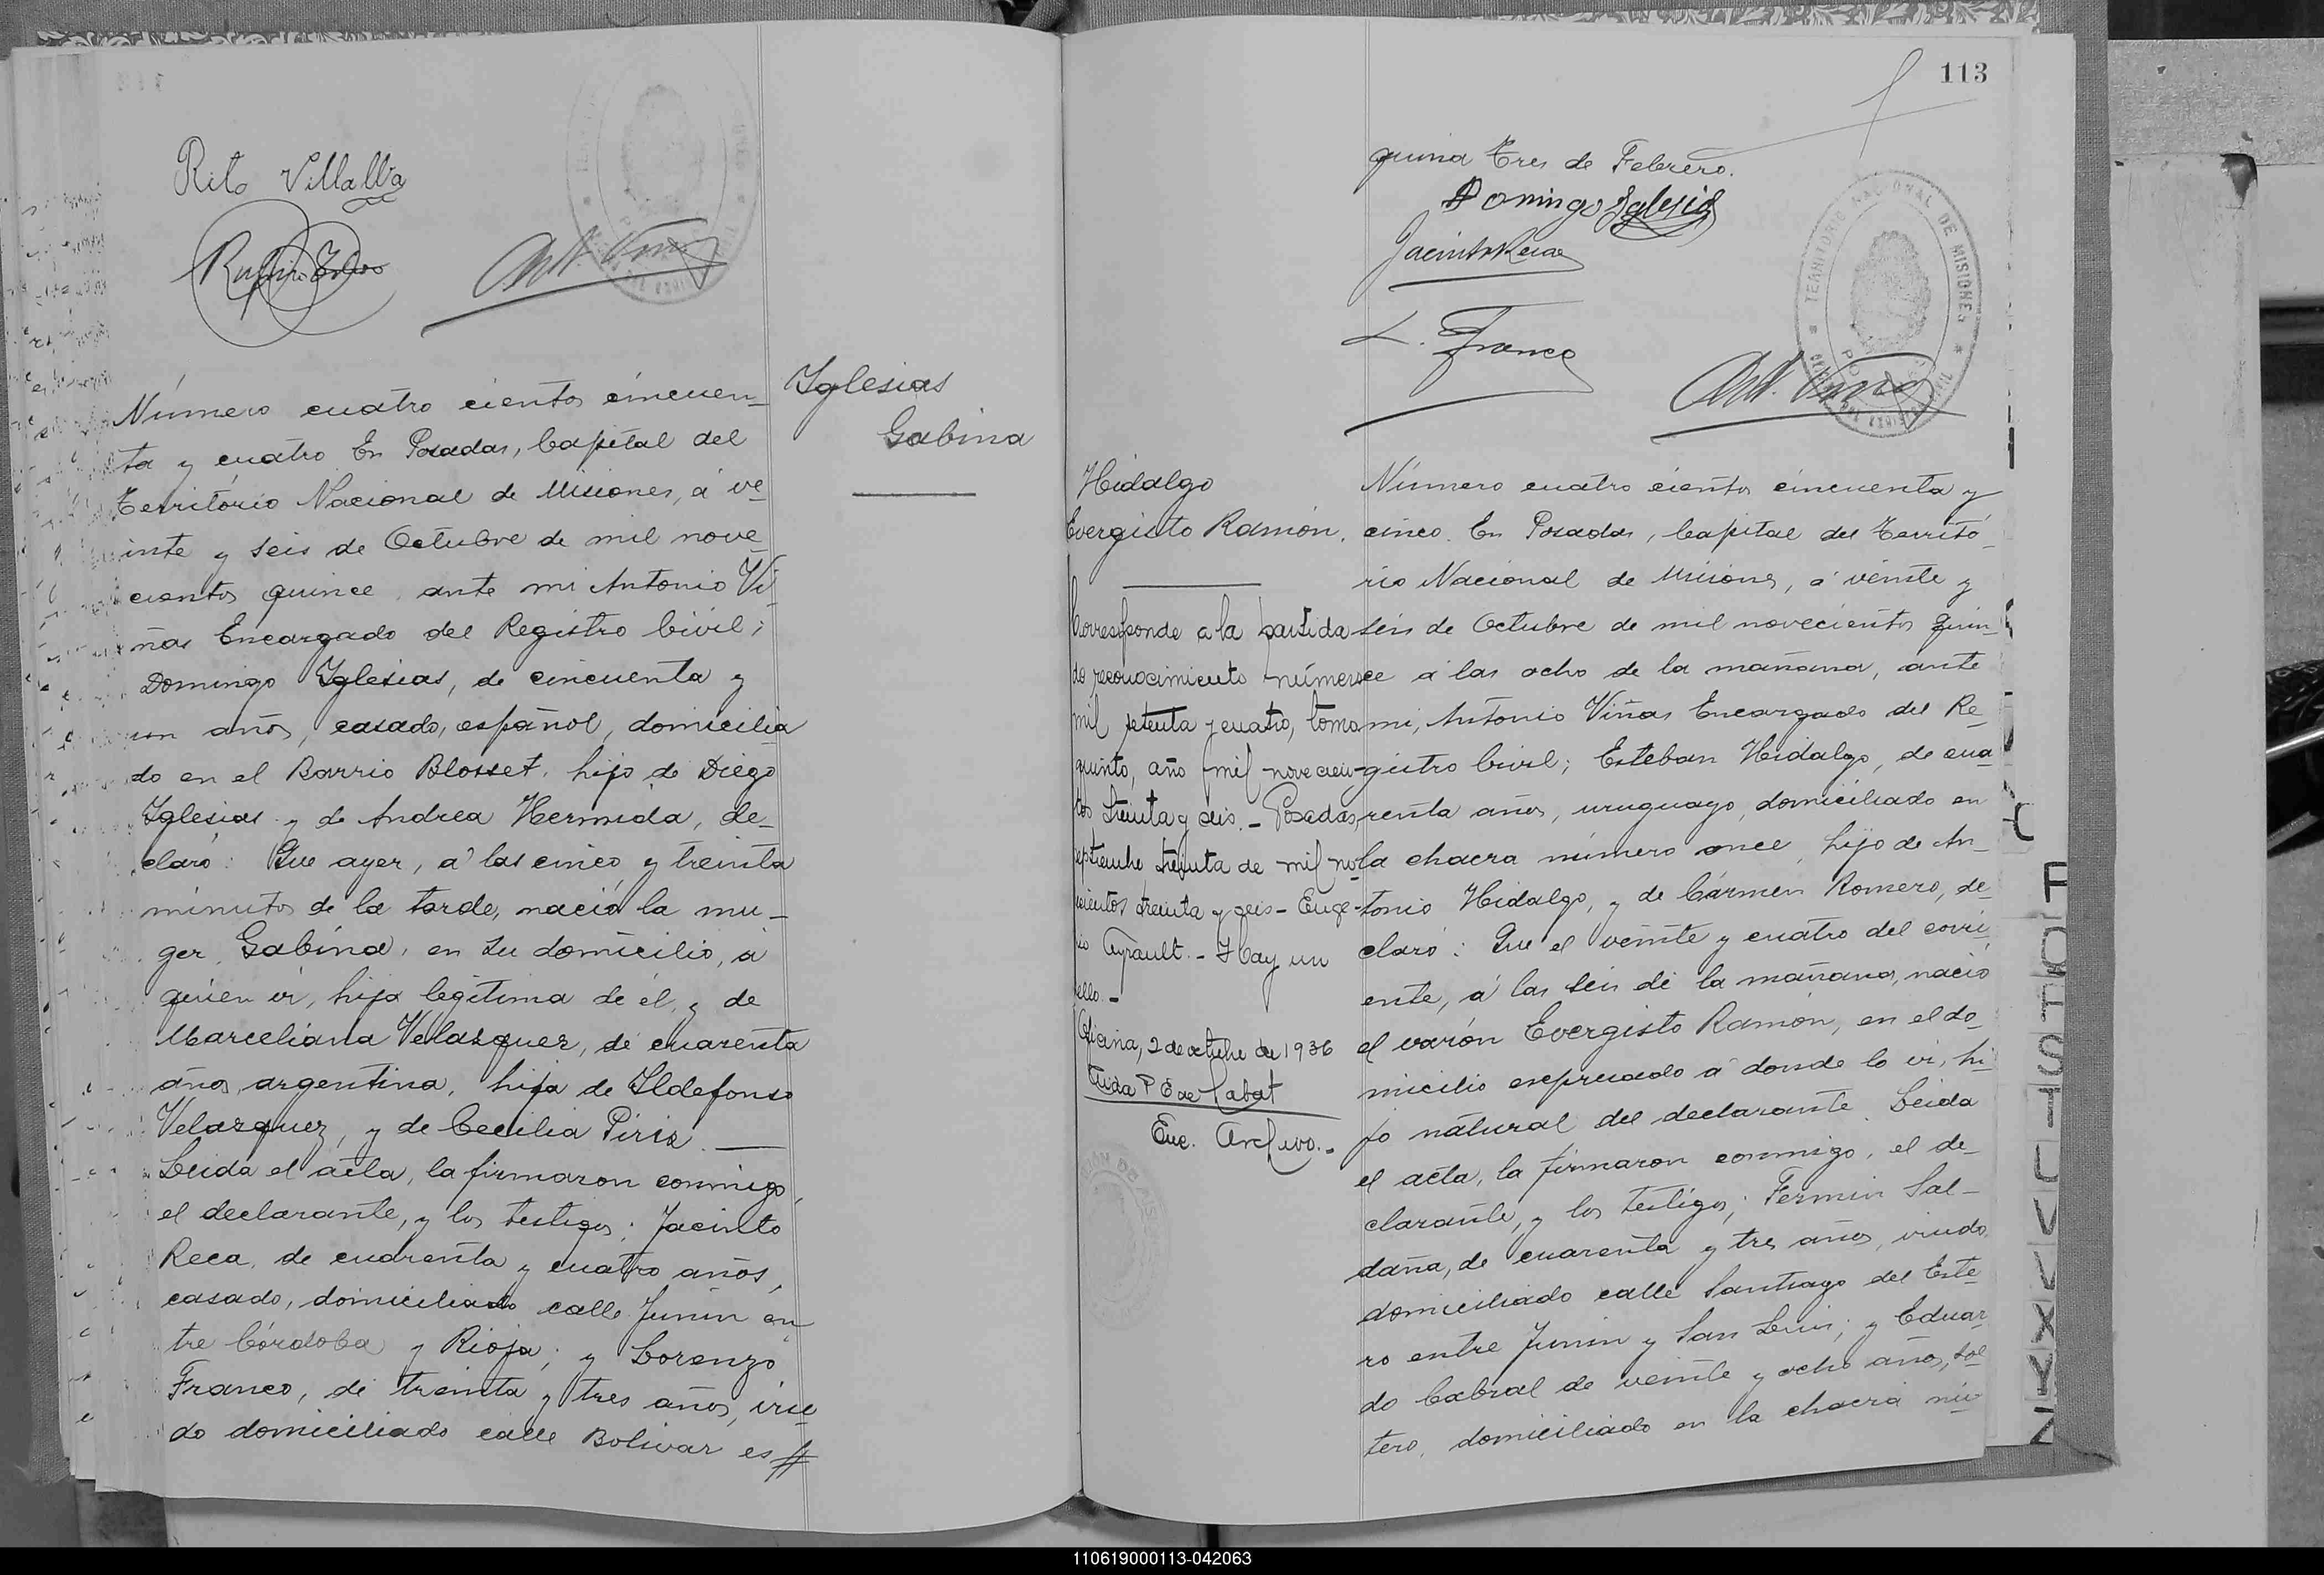 Rito Villalba
Número cuatro cientos cincuen-
ta y cuatro En Posadas, Capital del
Territorio Nacional de Misiones, á ve-
inte y seis de Octubre de mil nove-
cientos quince, ante mi Antonio Vi-
ñas Encargado del Registro Civil;
Domingo Iglesias, de cincuenta y
un años, casado, español, domicilia
do en el Barrio Blosset, hijo de Diego
Iglesias y de Andrea Hermida, de-
claró: Que ayer, á las cinco y treinta
minutos de la tarde, nació la mu-
ger, Gabina, en su domicilio, á
quien vi, hija legitima de él, y de
Marceliana Velazquez, de cuarenta
años, argentina, hija de Ildefonso
Velazquez, y de Cecilia Piriz.
Leida el acta, la firmaron conmigo,
el declarante, y los testigos: Jacinto
Reca, de cuarenta y cuatro años,
casado, domiciliado calle Junin en-
tre Córdoba y Rioja; y Lorenzo
Franco, de treinta y tres años, viu-
do domiciliado calle Bolivar es#
Iglesias
Gabina
113
quina Tres de Febrero.
Domingo Iglesias
Jacinto Reca
L. Franco
TERRITORIO NACIONAL DE MISIONES
Hidalgo
Evergisto Ramón.
Corresponde a la partida
de reconocimiento número
mil setenta y cuatro, tomo
quinto, año mil novecien-
tos treinta y seis.- Posadas,
septiembre treinta de mil no-
vecientos treinta y seis- Euge-
nio Ayrault.- Hay un
sello.-
Oficina, 2 de octubre de 1936
Enc. Archivo.-
Número cuatro cientos cincuenta y
cinco. En Posadas, Capital del Territo-
rio Nacional de Misiones, á veinte y
seis de Octubre de mil novecientos quin-
ce á las ocho de la mañana, ante
mi, Antonio Viñas Encargado del Re-
gistro Civil; Esteban Hidalgo, de cua-
renta años, uruguayo, domiciliado en
la chacra número once, hijo de An-
tonio Hidalgo, y de Cármen Romero, de-
claró: Que el veinte y cuatro del corri-
ente, á las seis de la mañana, nació
el varón Evergisto Ramón, en el do-
micilio expresado á donde lo vi, hi-
jo natural del declarante. Leida
el acta, la firmaron conmigo, el de-
clarante, y los testigos; Fermin Sal-
daña, de cuarenta y tres años, viudo,
domiciliado calle Santiago del Este-
ro entre Junin y San Luis; y Eduar-
do Cabral de veinte y ocho años, sol-
tero, domiciliado en la chacra nú-
P
Q
T
S
U
V
V
X
Y
Z
110619000113-042063